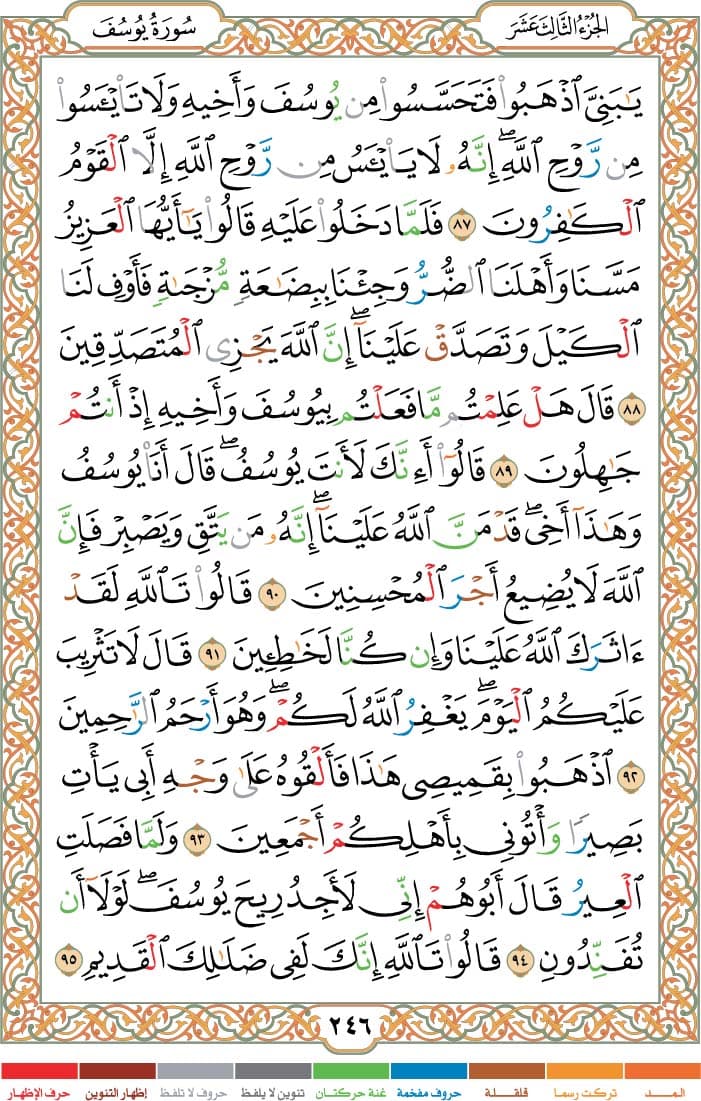 الجزء الثالث عشر
سورة يوسف
يَٰبَنِىَّ ٱذْهَبُوا۟ فَتَحَسَّسُوا۟ مِن يُوسُفَ وَأَخِيهِ وَلَا تَا۟يْـَٔسُوا۟
مِن رَّوْحِ ٱللَّهِ ۖ إِنَّهُۥ لَا يَا۟يْـَٔسُ مِن رَّوْحِ ٱللَّهِ إِلَّا ٱلْقَوْمُ
ٱلْكَٰفِرُونَ ٨٧ فَلَمَّا دَخَلُوا۟ عَلَيْهِ قَالُوا۟ يَٰٓأَيُّهَا ٱلْعَزِيزُ
مَسَّنَا وَأَهْلَنَا ٱلضُّرُّ وَجِئْنَا بِبِضَٰعَةٍ مُّزْجَىٰةٍ فَأَوْفِ لَنَا
ٱلْكَيْلَ وَتَصَدَّقْ عَلَيْنَآ ۖ إِنَّ ٱللَّهَ يَجْزِى ٱلْمُتَصَدِّقِينَ
٨٨ قَالَ هَلْ عَلِمْتُم مَّا فَعَلْتُم بِيُوسُفَ وَأَخِيهِ إِذْ أَنتُمْ
جَٰهِلُونَ ٨٩ قَالُوٓا۟ أَءِنَّكَ لَأَنتَ يُوسُفُ ۖ قَالَ أَنَا۠ يُوسُفُ
وَهَٰذَآ أَخِى ۖ قَدْ مَنَّ ٱللَّهُ عَلَيْنَآ ۖ إِنَّهُۥ مَن يَتَّقِ وَيَصْبِرْ فَإِنَّ
ٱللَّهَ لَا يُضِيعُ أَجْرَ ٱلْمُحْسِنِينَ ٩٠ قَالُوا۟ تَٱللَّهِ لَقَدْ
ءَاثَرَكَ ٱللَّهُ عَلَيْنَا وَإِن كُنَّا لَخَٰطِـِٔينَ ٩١ قَالَ لَا تَثْرِيبَ
عَلَيْكُمُ ٱلْيَوْمَ ۖ يَغْفِرُ ٱللَّهُ لَكُمْ ۖ وَهُوَ أَرْحَمُ ٱلرَّٰحِمِينَ
٩٢ ٱذْهَبُوا۟ بِقَمِيصِى هَٰذَا فَأَلْقُوهُ عَلَىٰ وَجْهِ أَبِى يَأْتِ
بَصِيرًا وَأْتُونِى بِأَهْلِكُمْ أَجْمَعِينَ ٩٣ وَلَمَّا فَصَلَتِ
ٱلْعِيرُ قَالَ أَبُوهُمْ إِنِّى لَأَجِدُ رِيحَ يُوسُفَ ۖ لَوْلَآ أَن
تُفَنِّدُونِ ٩٤ قَالُوا۟ تَٱللَّهِ إِنَّكَ لَفِى ضَلَٰلِكَ ٱلْقَدِيمِ ٩٥
٢٤٦
المــد تركت رسما قلقلة حروف مفخمة غنة حركتان تنوين لا يلفظ حروف لا تلفظ إظهار التنوين حرف الإظهار